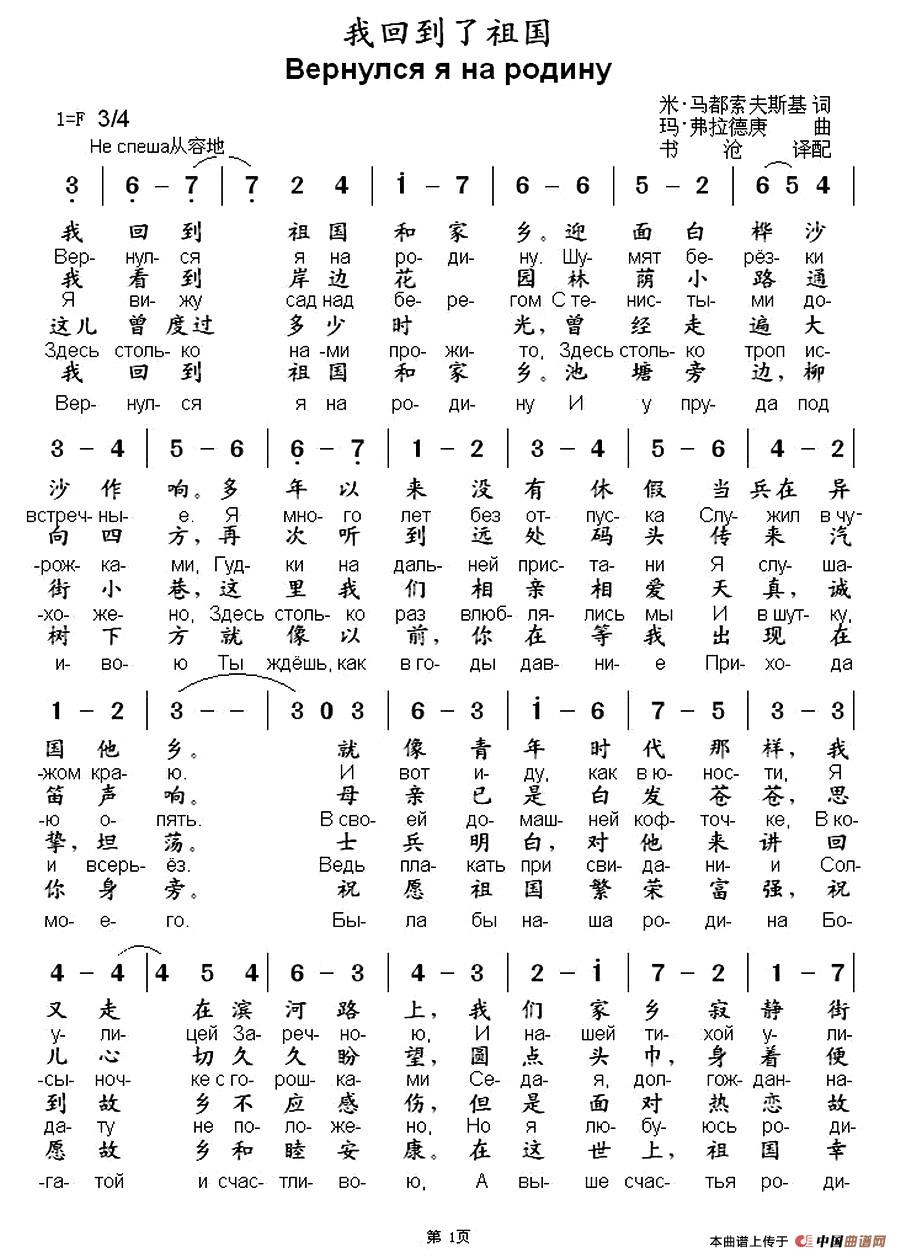 我回到了祖国
Вернулся я на родину
米·马都索夫斯基 词
1=F 3/4
玛·弗拉德庚 曲
Не спеша从容地
书 沧 译配
3 | 6 – 7 | 7 2 4 | i – 7 | 6 – 6 | 5 – 2 | 6 5 4
我 回 到 祖 国 和 家 乡。迎 面 白 桦 沙
Вер- нул- ся я на ро- ди- ну. Шу- мят бе- рёз- ки
我 看 到 岸 边 花 园 林 荫 小 路 通
Я ви- жу сад над бе- ре- гом С те- нис- ты- ми до-
这儿 曾 度过 多 少 时 光，曾 经 走 遍 大
Здесь столь- ко на -ми про- жи- то, Здесь столь- ко троп ис-
我 回 到 祖 国 和 家 乡。池 塘 旁 边，柳
Вер- нул- ся я на ро- ди- ну И у пру- да под
3 – 4 | 5 – 6 | 6 – 7 | 1 – 2 | 3 – 4 | 5 – 6 | 4 – 2
沙 作 响。多 年 以 来 没 有 休 假 当 兵在 异
встреч- ны- е. Я мно- го лет без от- пус- ка Слу- жил в чу-
向 四 方，再 次 听 到 远 处 码 头 传 来 汽
-рож- ка- ми, Гуд- ки на даль- ней прис- та- ни Я слу- ша-
街 小 巷，这 里 我 们 相 亲 相 爱 天 真，诚
-хо- же- но, Здесь столь- ко раз влюб- ля- лись мы И в шут- ку,
树 下 方 就 像 以 前，你 在 等 我 出 现 在
и- во- ю Ты ждёшь, как в го- ды дав- ни- е При- хо- да
1 – 2 | 3 – – | 3 0 3 | 6 – 3 | i – 6 | 7 – 5 | 3 – 3
国 他 乡。 就 像 青 年 时 代 那 样，我
-жом кра- ю. И вот и- ду, как в ю- нос- ти, Я
笛 声 响。 母 亲 已 是 白 发 苍 苍，思
-ю о- пять. В сво- ей до- маш- ней коф- точ- ке, В ко-
挚，坦 荡。 士 兵 明 白，对 他 来 讲 回
и всерь- ёз. Ведь пла- кать при сви- да- ни- и Сол-
你 身 旁。 祝 愿 祖 国 繁 荣 富 强，祝
мо- е- го. Бы- ла бы на- ша ро- ди- на Бо-
4 – 4 | 4 5 4 | 6 – 3 | 4 – 3 | 2 – i | 7 – 2 | 1 – 7
又 走 在 滨 河 路 上，我 们 家 乡 寂 静 街
у- ли- цей За- реч- но- ю, И на- шей ти- хой у- ли-
儿 心 切 久 久 盼 望，圆 点 头 巾，身 着 便
-сы- ноч- ке с го- рош- ка- ми Се- да- я, дол- гож- дан- на-
到 故 乡 不 应 感 伤，但 是 面 对 热 恋 故
да- ту не по- ло- же- но, Но я лю- бу- юсь ро- ди-
愿 故 乡 和 睦 安 康。在 这 世 上，祖 国 幸
-га- той и счас- тли- во- ю, А вы- ше счас- тья ро- ди-
第 1页
本曲谱上传于 中国曲谱网